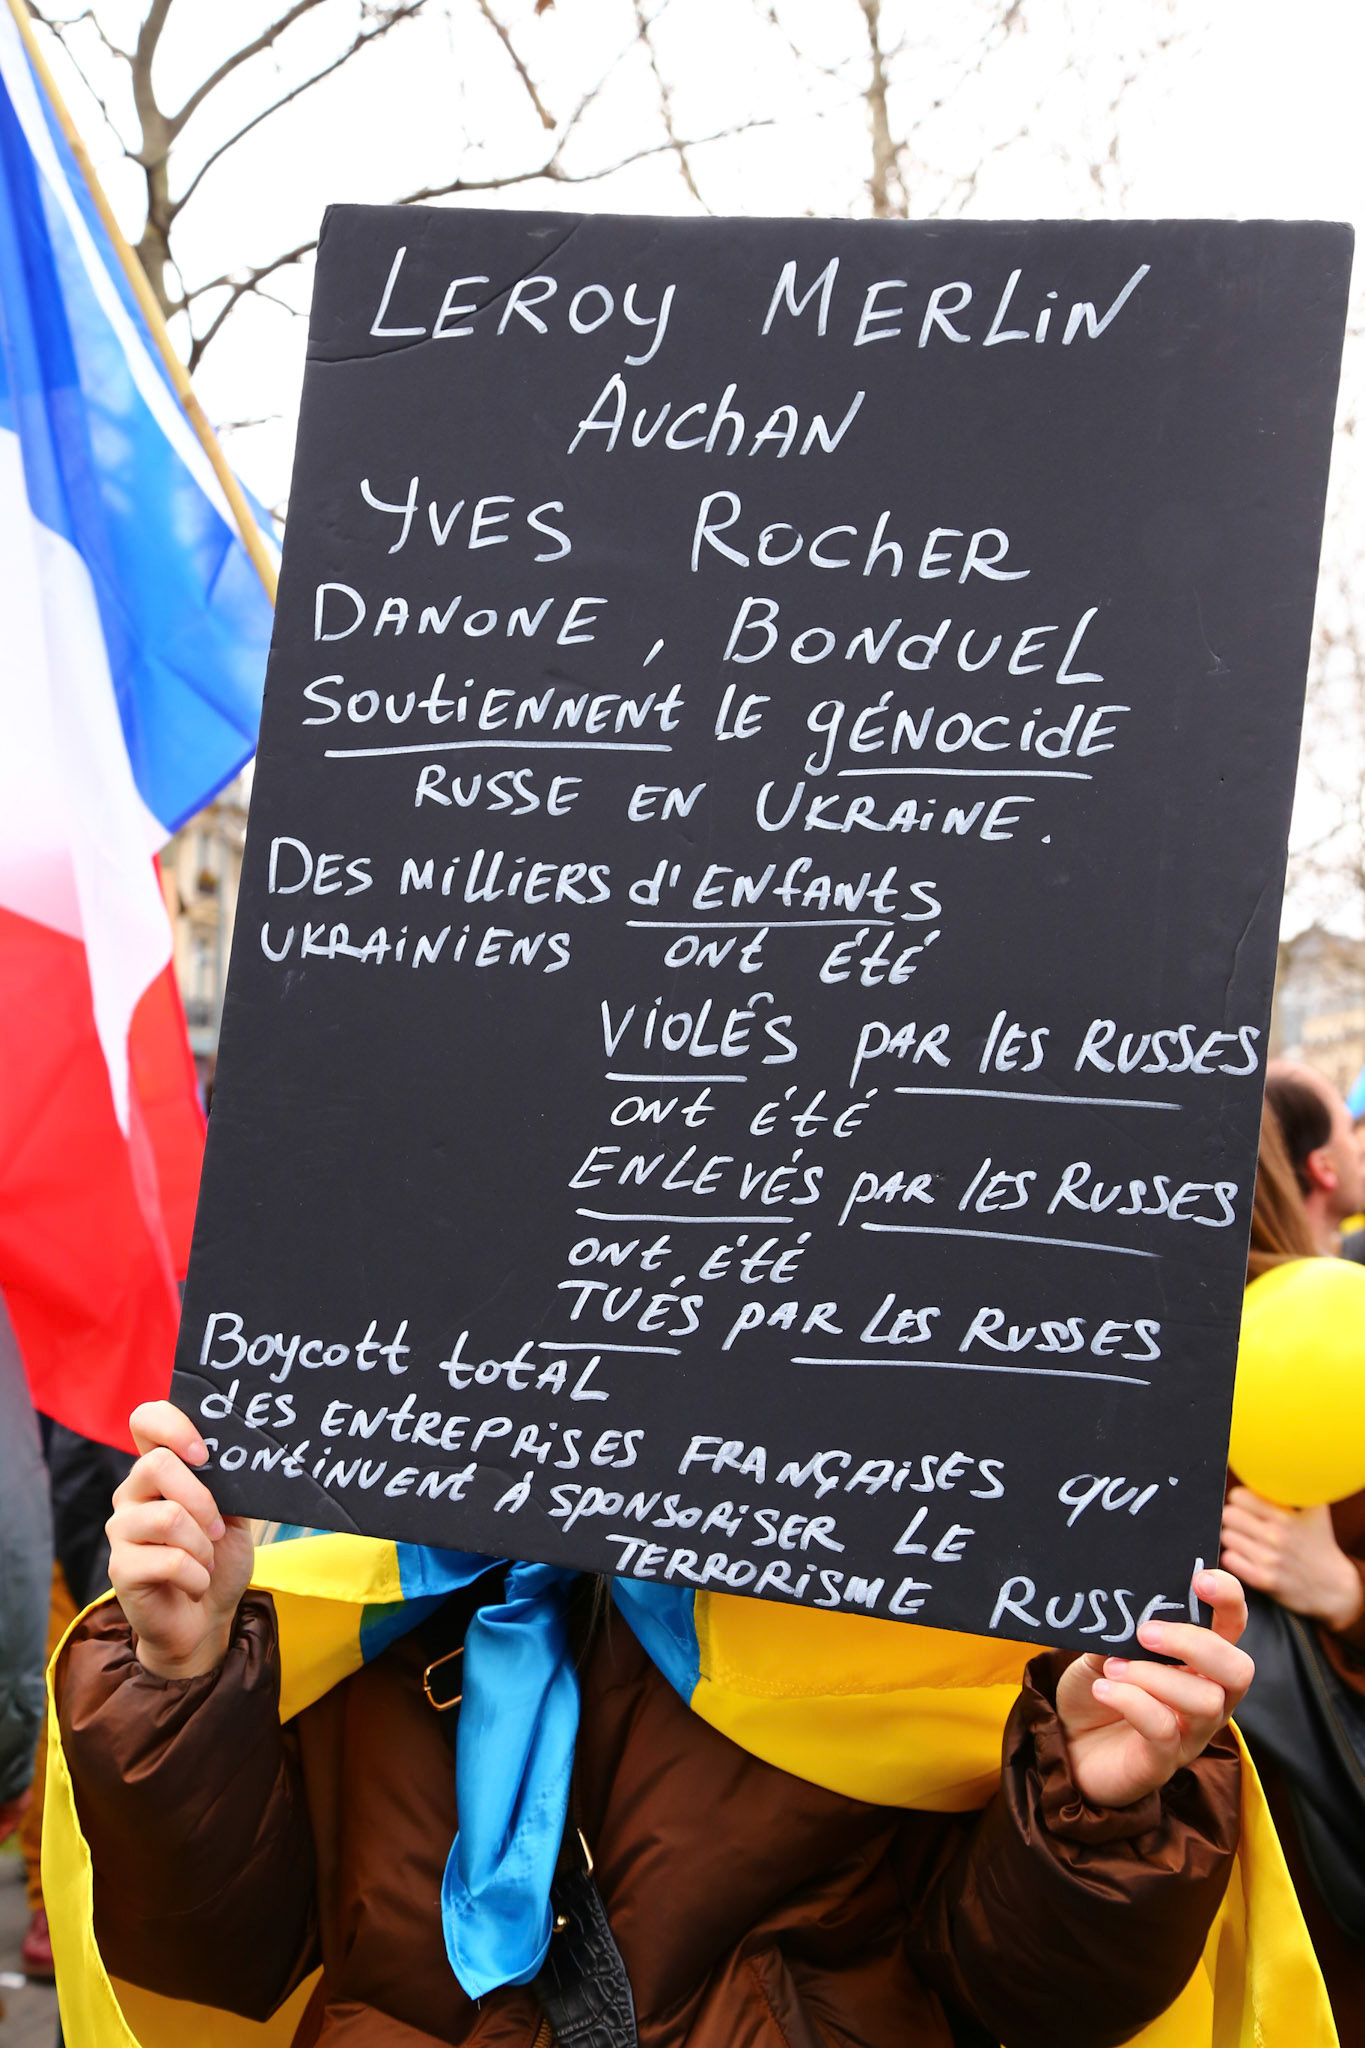 LEROY MERLiN
AUChAN
YVES ROChER
DANONE, BONdUEL
SOUtiENNENt LE gÉNOCidE
RUSSE EN UKRAiNE.
DES MilliERS d'ENfANtS
UKRAiNiENS ONt ÉtÉ
ViOLÊS PAR lES RUSSES
ONt ÉtÉ
ENLEVÉS PAR lES RUSSES
ONt ÉtÉ
TUÉS PAR LES RUSSES
Boycott totAL
dES ENtREPRiSES FRANÇAiSES qui
CONtiNUENt À SPONSORiSER LE
TERRORiSME RUSSE!